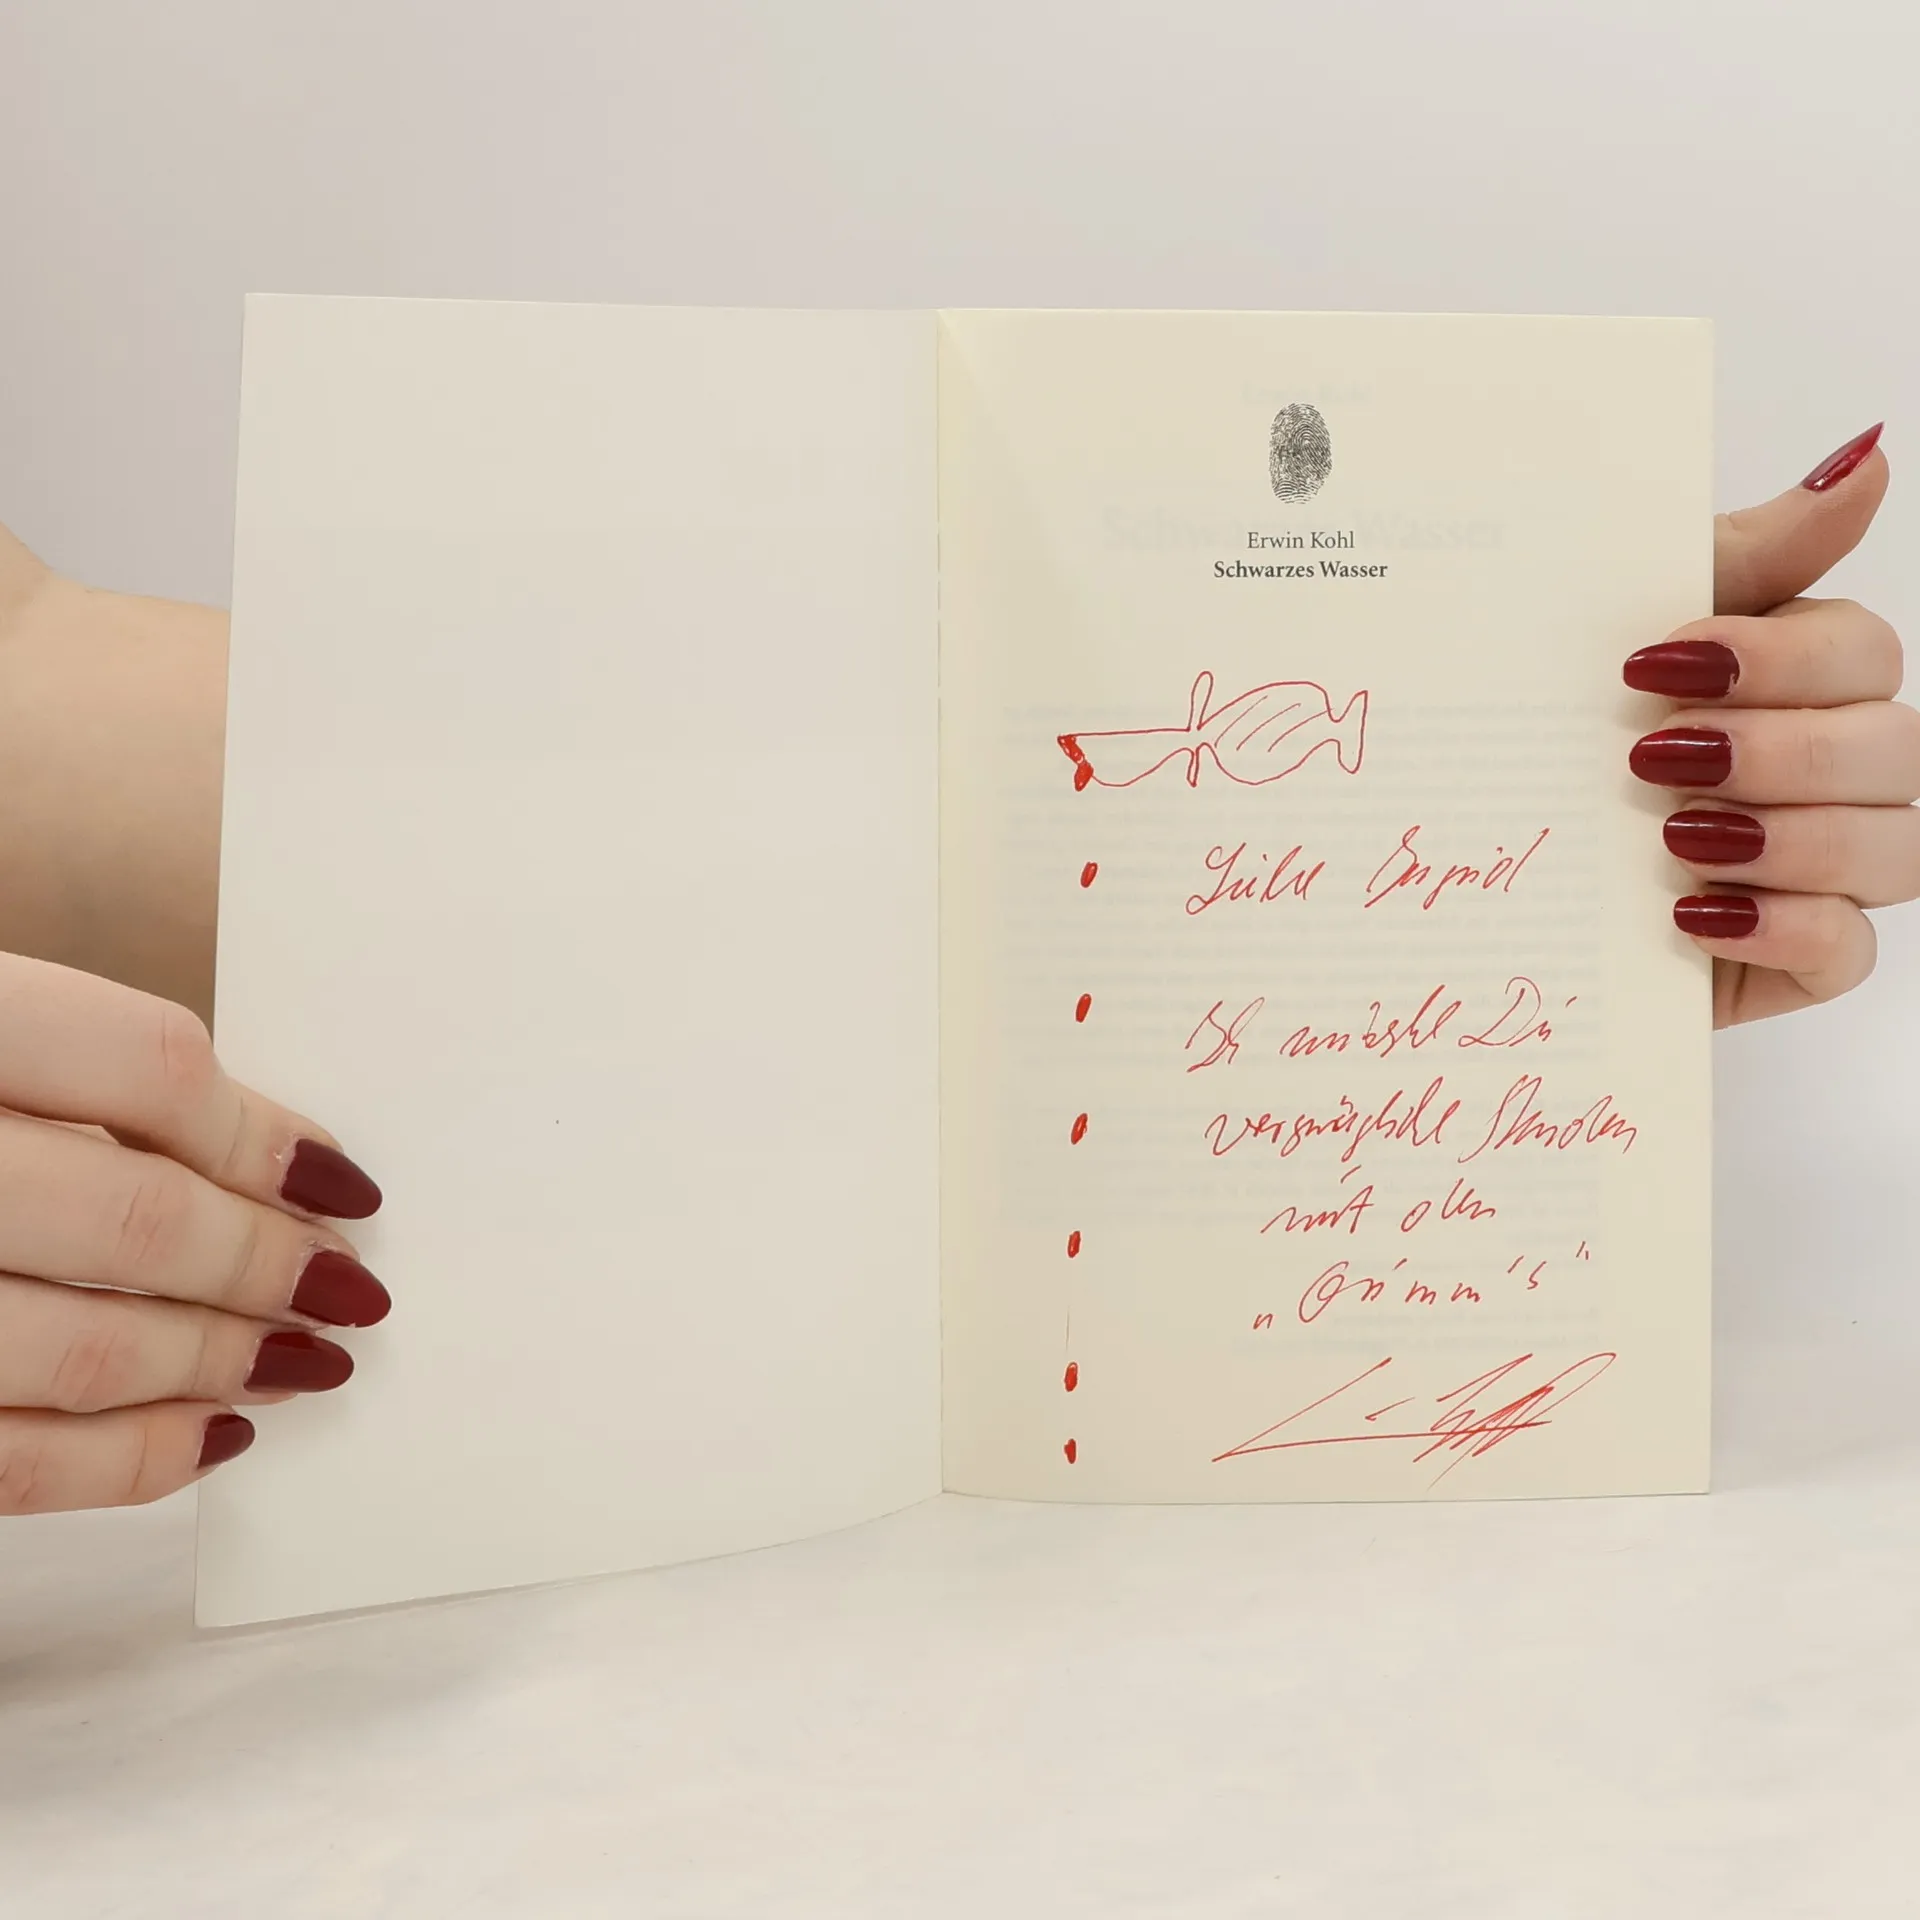 Erwin Kohl
Schwarzes Wasser
Liebe Ingrid
Ich wünsche Dir
vergnügliche Stunden
mit den
„Grimm's"